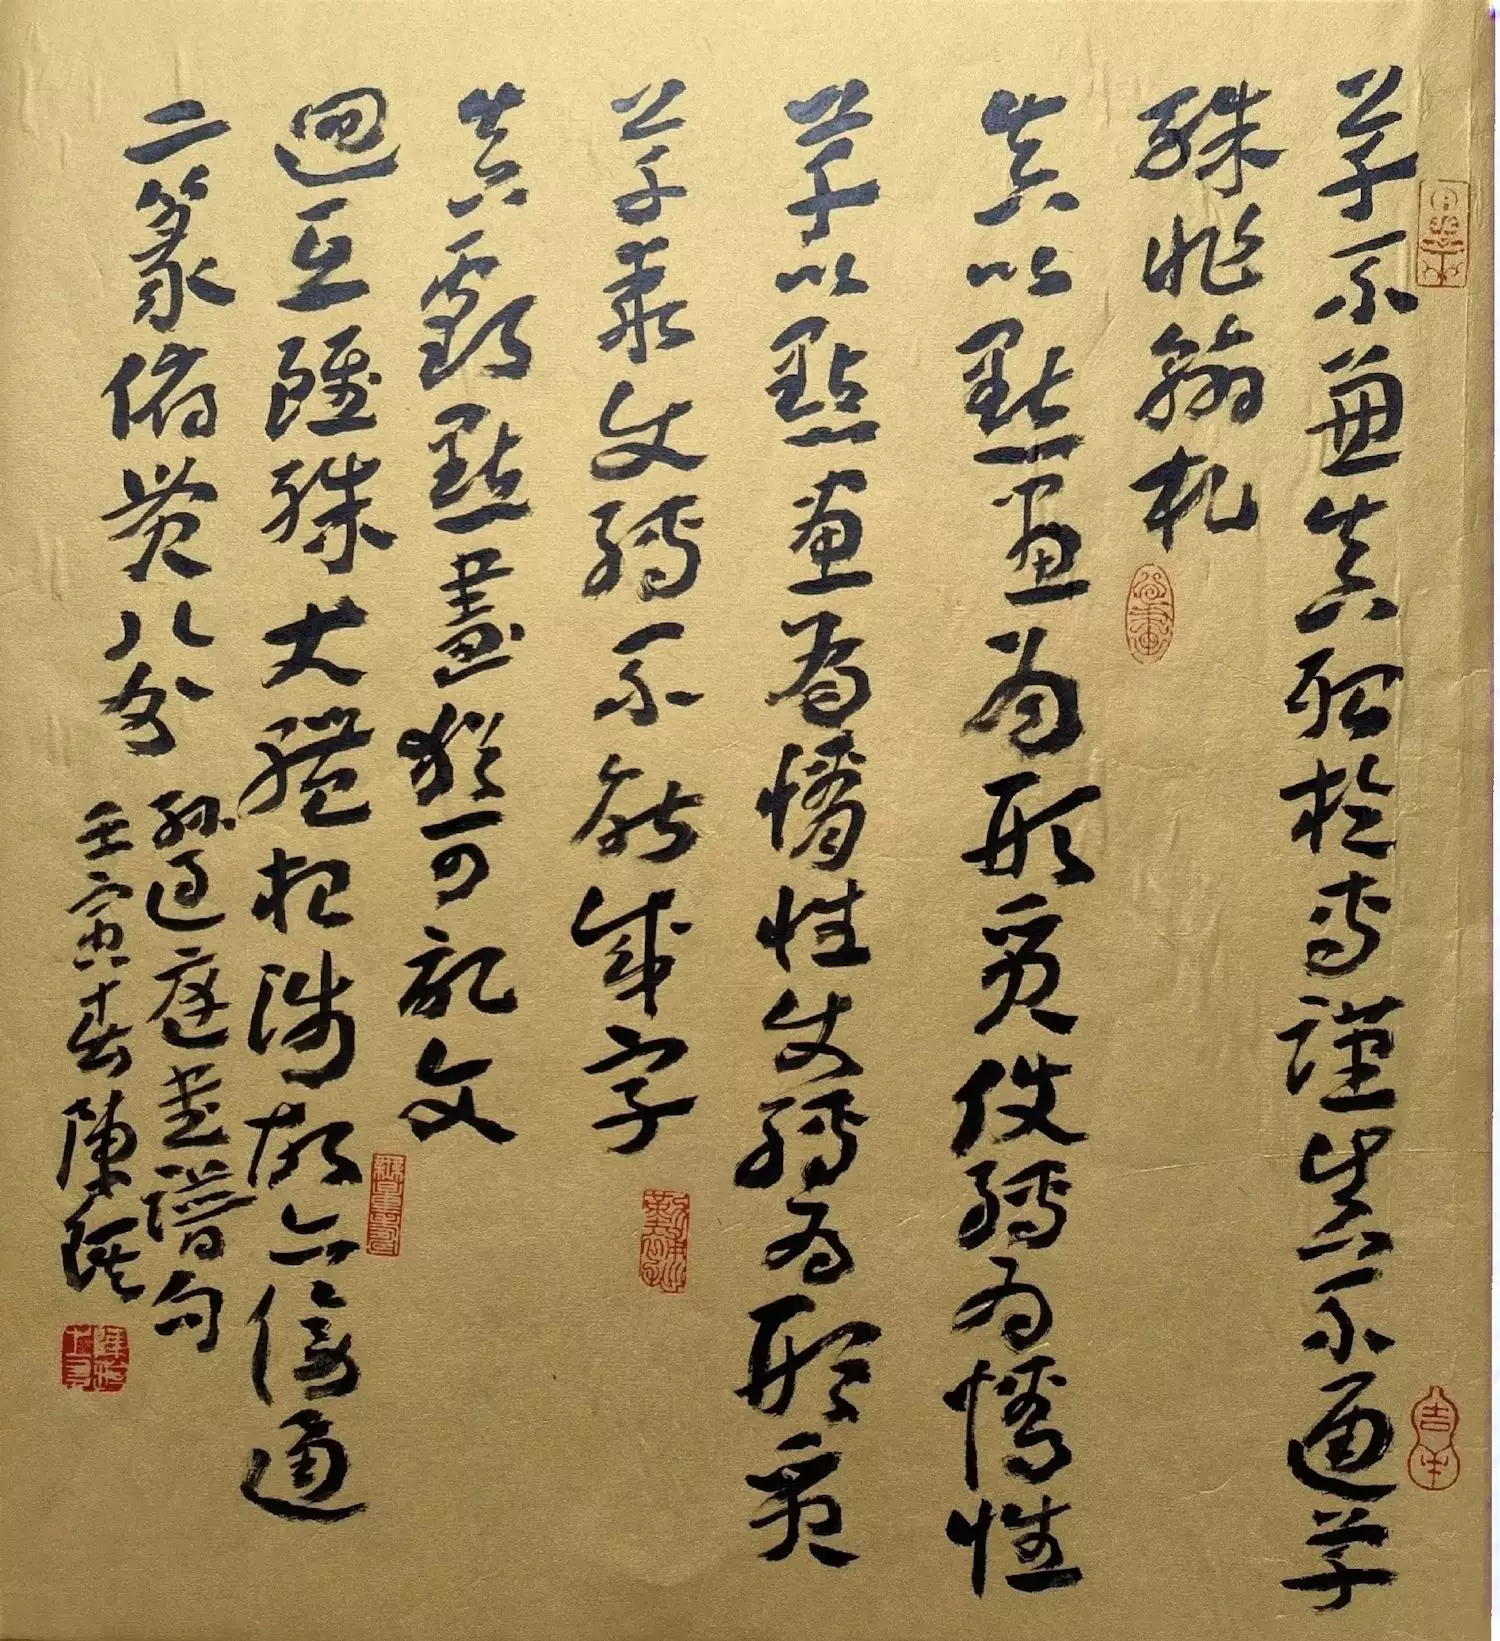 草不兼真殆於專謹真不通草
殊非翰札
真以點畫為形質使轉為情性
草以點畫為情性使轉為形質
草乖使轉不能成字
真虧點畫猶可記文
迴互雖殊大體相涉故亦傍通
二篆俯貫八分
孫過庭書譜句
壬寅春陳
吉羊